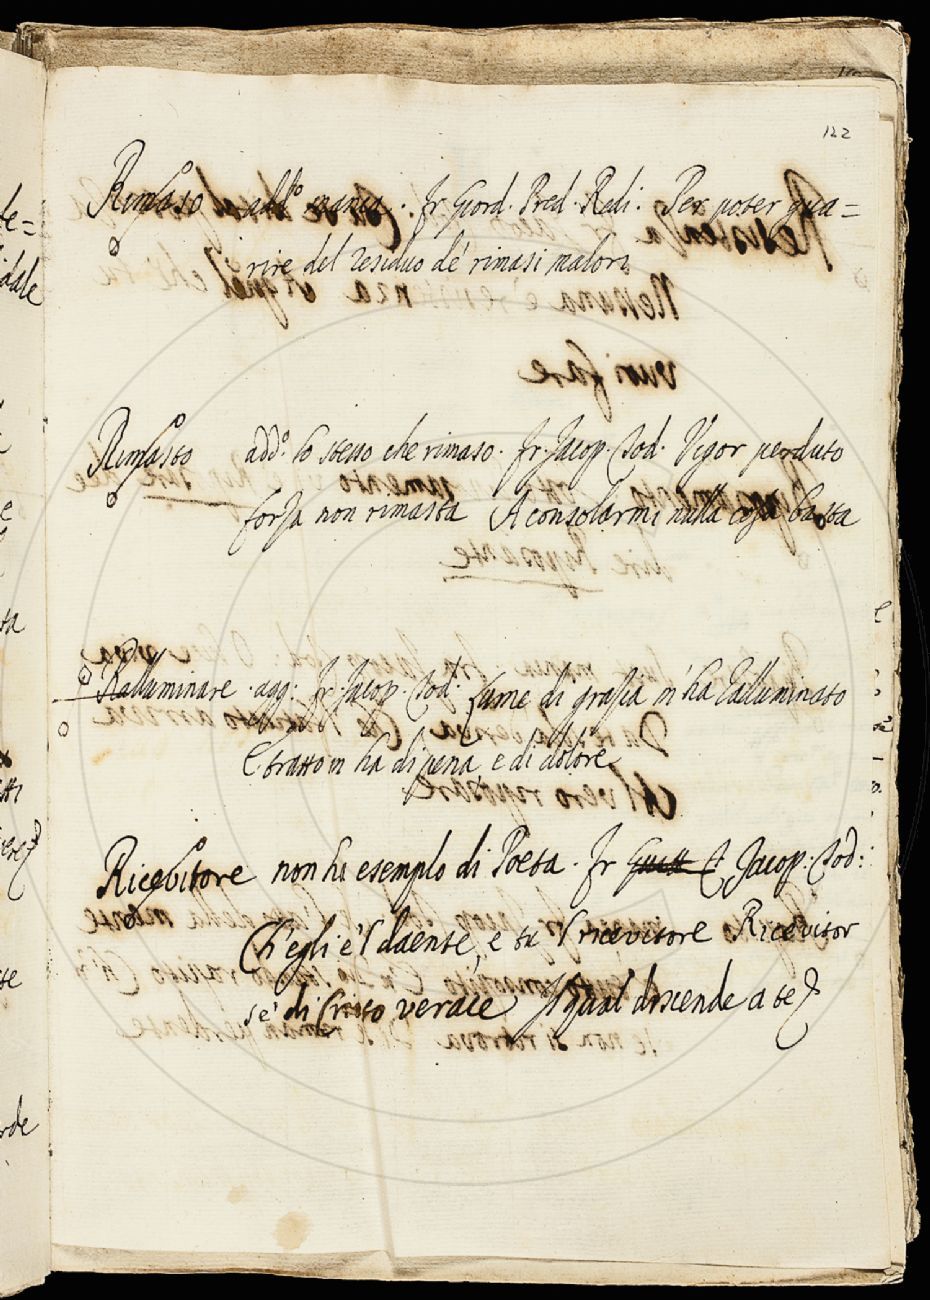 122
Rimaso add.° manca. Fr. Giord. Pred. Redi. Per poter gua=
rire del residuo de' rimasi malori
Rimasto add.° lo stesso che rimaso. Fr. Jacop. Tod. Vigor perduto
forza non rimasta A consolarmi nulla cosa basta
Ralluminare. agg: Fr. Jacop. Tod.i Lume di grazia m'ha ralluminato
E tratto m'ha di pena, e di dolore
Ricevitore non hi esemplo di Poeta. Fr. B. Jacop: Tod:
Ch'egli è 'l daente, e tu 'l ricevitore Ricevitor
se' di Cristo verace Il qual discende a te